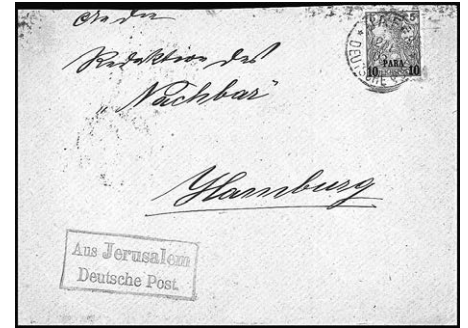 An die
Redaktion des
„Nachbar"
Hamburg
Aus Jerusalem
Deutsche Post.
10 PARA 10